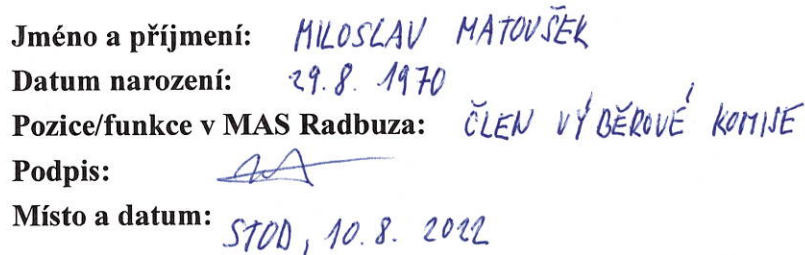 Jméno a příjmení: MILOSLAV MATOUŠEK
Datum narození: 29.8.1970
Pozice/funkce v MAS Radbuza: ČLEN VÝBĚROVÉ KOMISE
Podpis:
Místo a datum: STOD, 10.8.2022